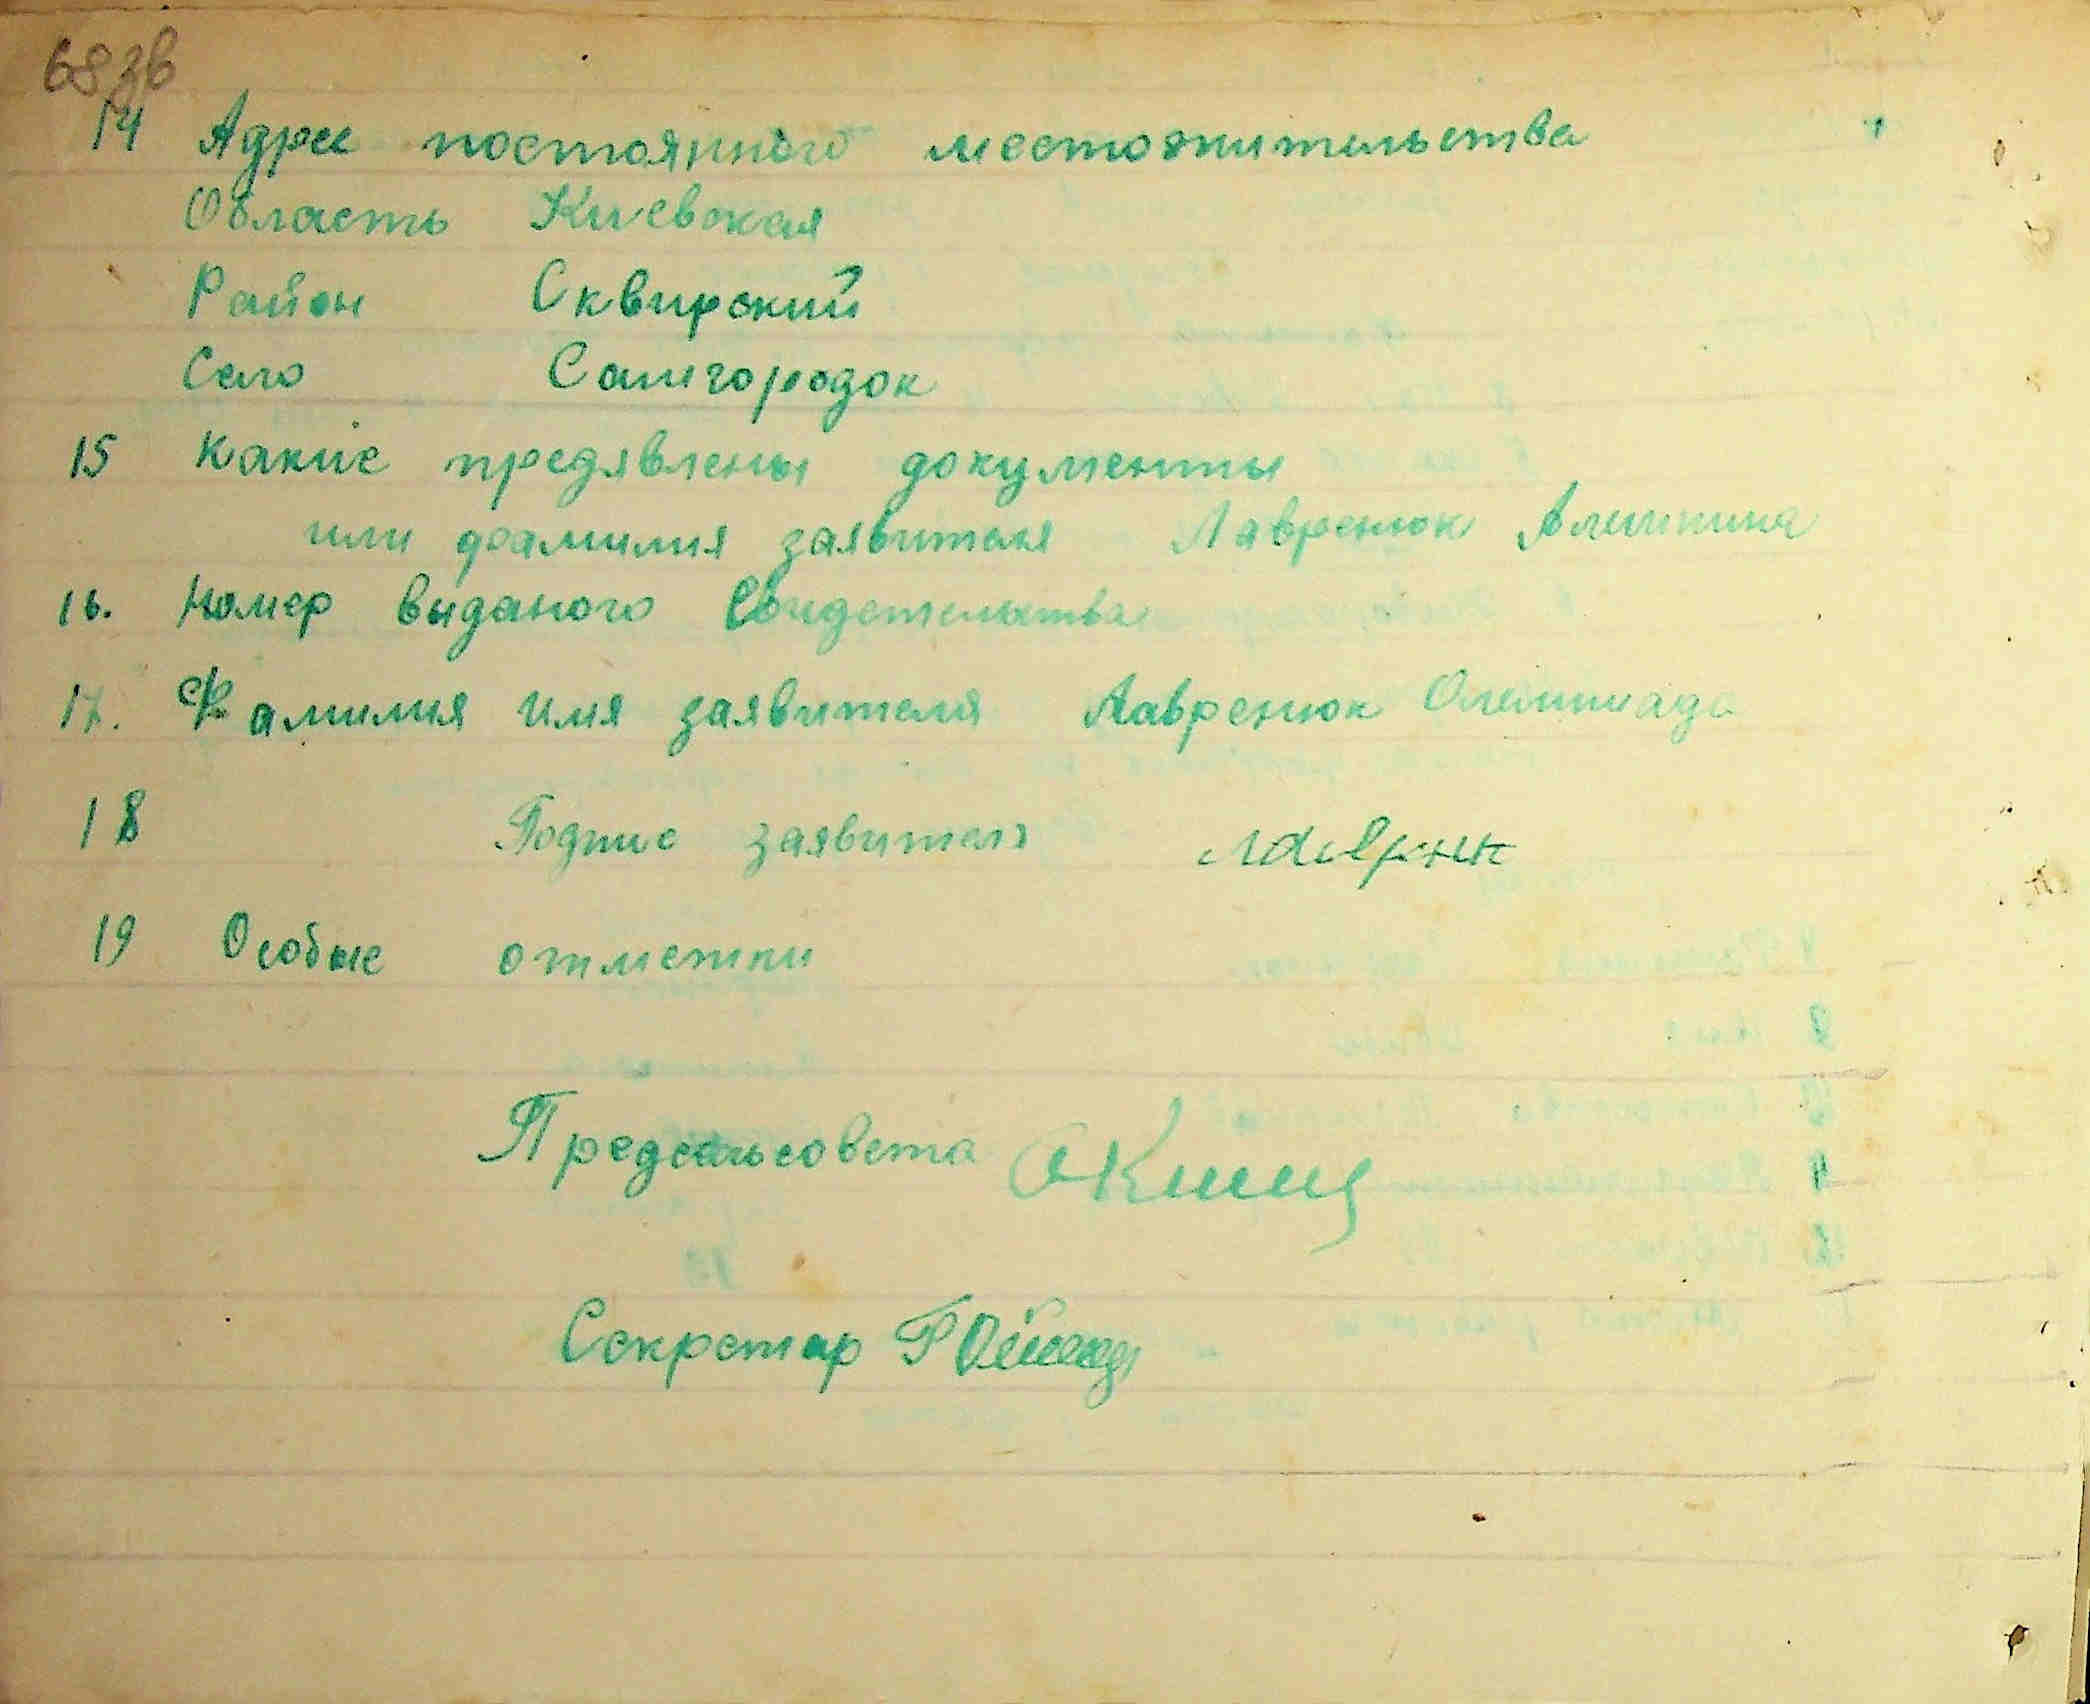 68зв
14 Адрес постоянного местожительства
Область Киевская
Район Сквирский
Село Самгородок
15 Какие предявлены документы
или фамилия заявителя Лавренюк
16. Номер выданого Свидетельства
17. Фамилия имя заявителя Лавренюк Олемпиада
18 Подпис заявителя
19 Особые отметки
Предсельсовета
Секретар